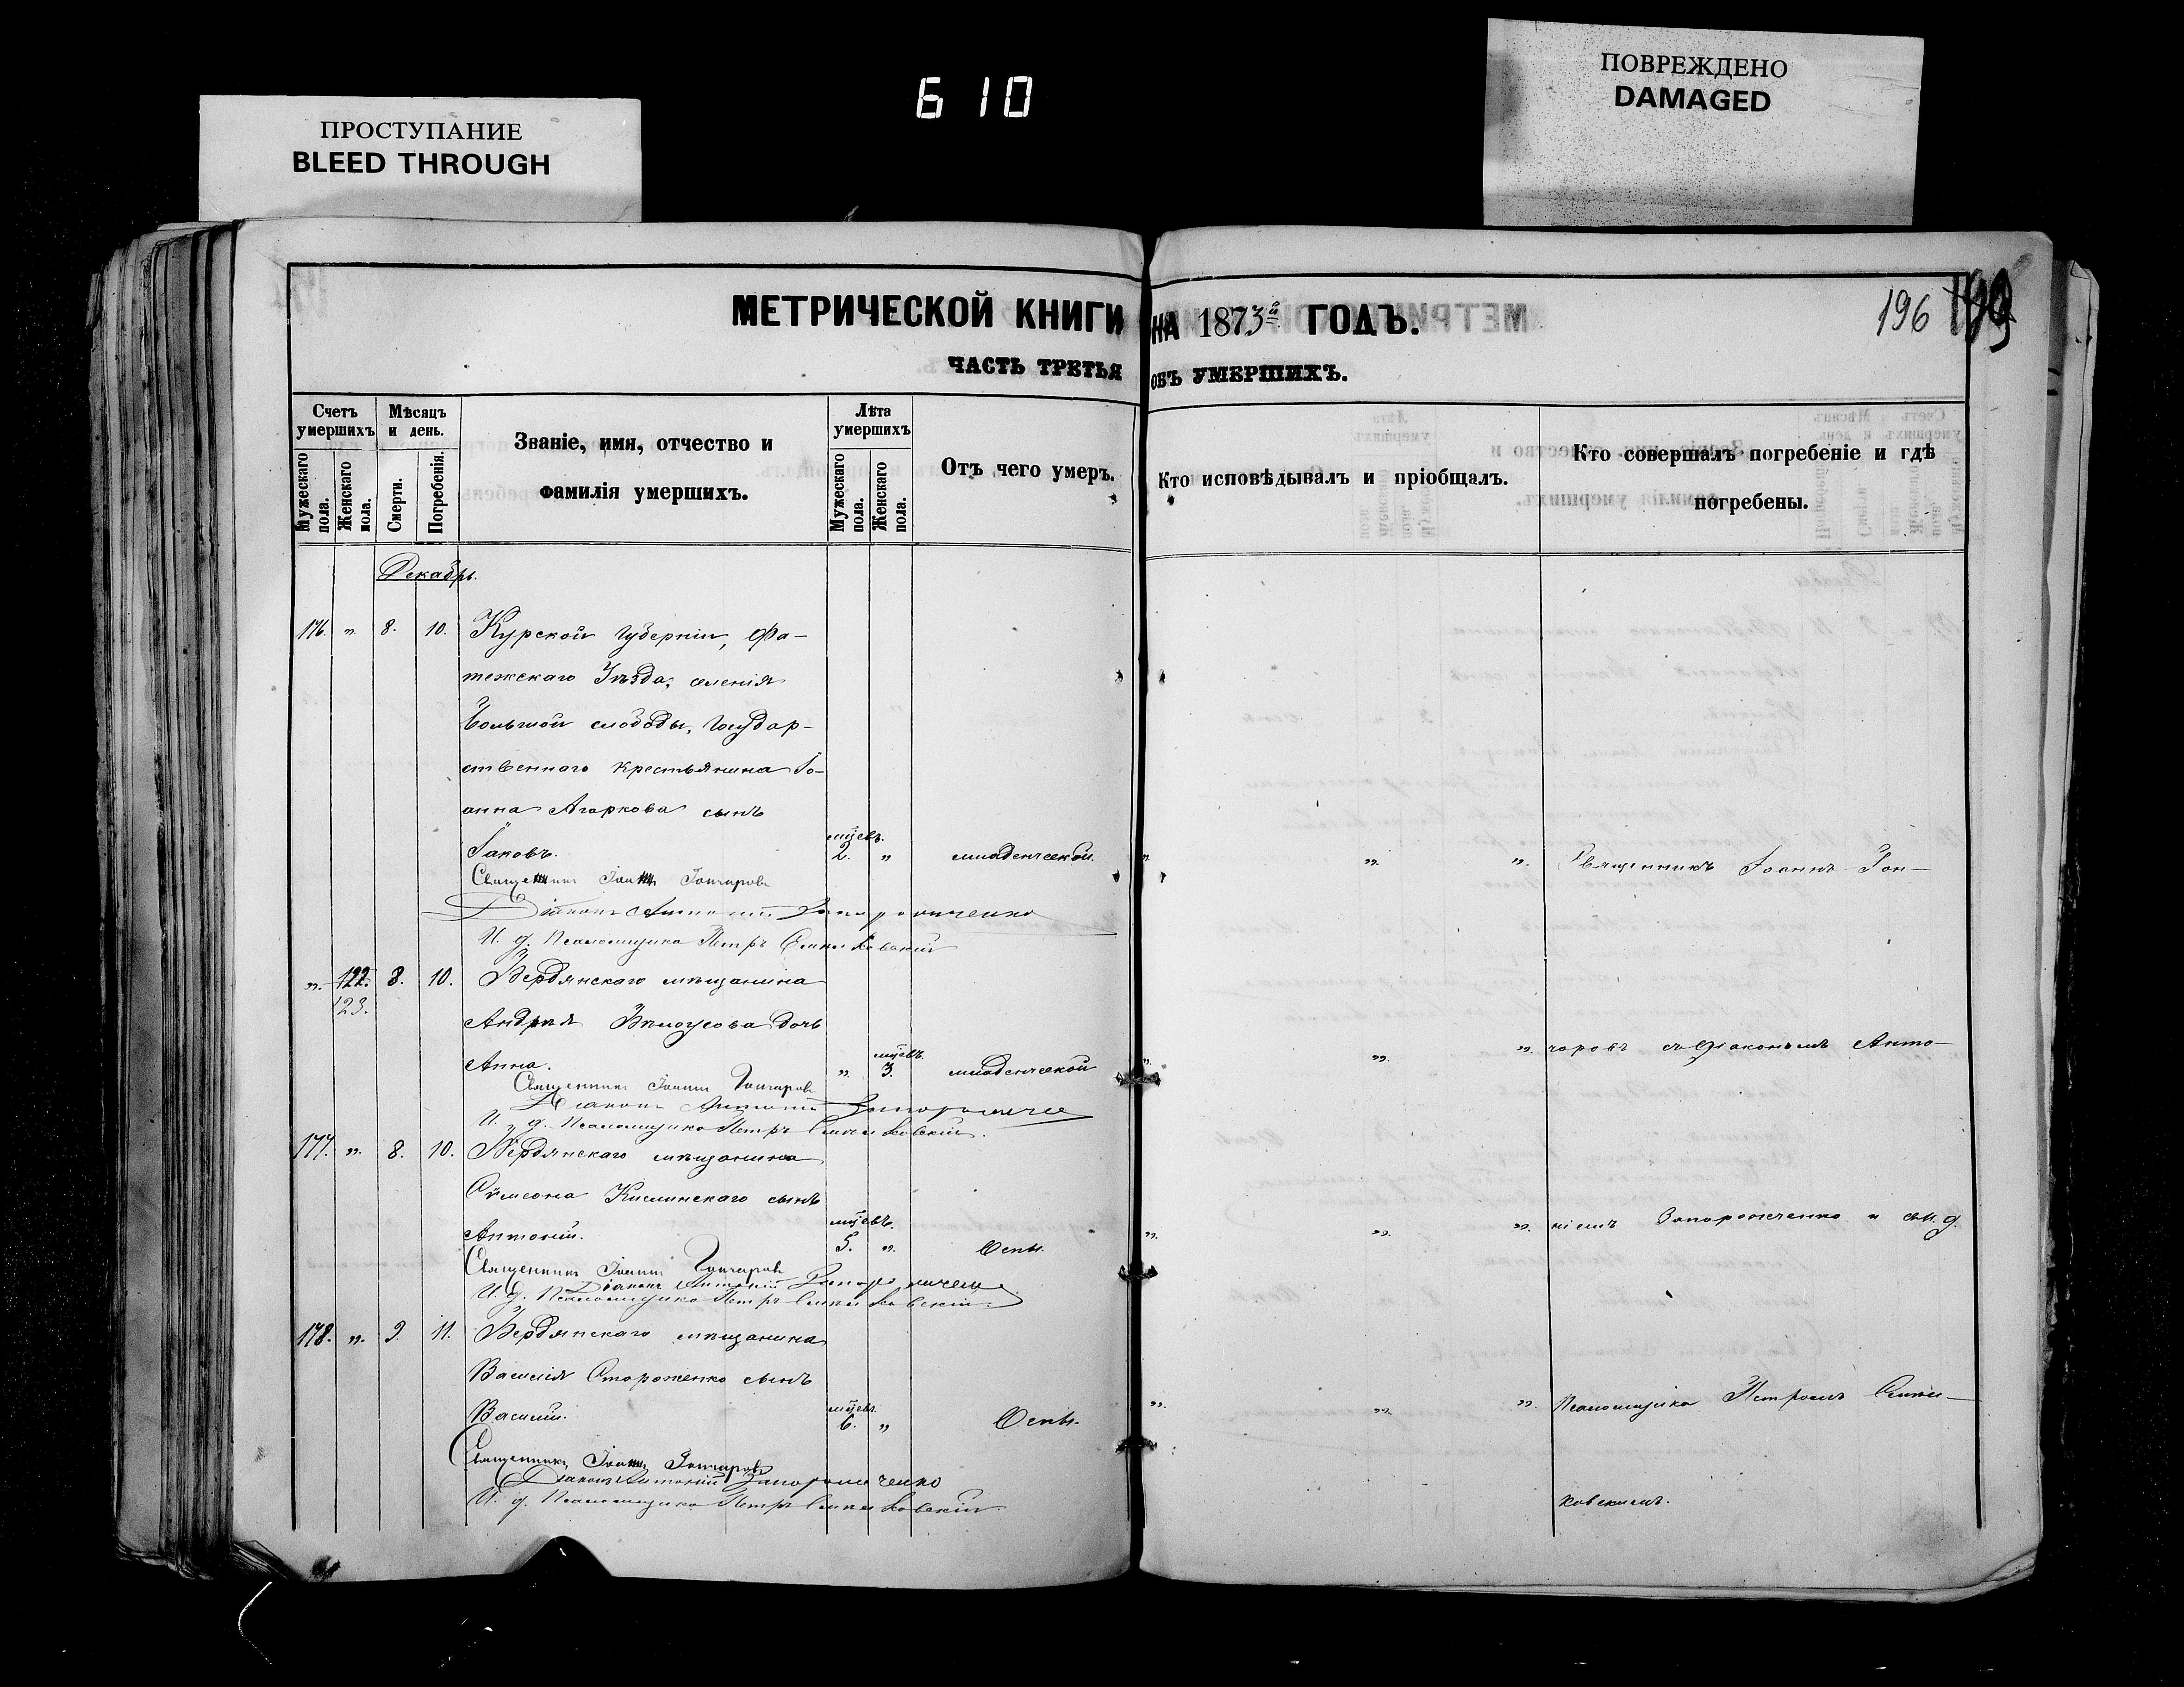 610
ПРОСТУПАНИЕ
BLEED THROUGH
ПОВРЕЖДЕНО
DAMAGED
МЕТРИЧЕСКОЙ КНИГИ НА 1873й ГОДЪ.
196
ЧАСТЬ ТРЕТЬЯ ОБЪ УМЕРШИХЪ.
Счетъ умершихъ
Мужескаго пола.
Женскаго пола.
Мѣсяцъ и день.
Смерти.
Погребенія.
Званіе, имя, отчество и
фамилія умершихъ.
Лѣта умершихъ
Мужескаго пола.
Женскаго пола.
Отъ чего умеръ.
Кто исповѣдывалъ и пріобщалъ.
Кто совершалъ погребеніе и гдѣ
погребены.
Декабрь.
176. „ 8. 10. Курской Губерніи, Фа-
тежскаго Уѣзда, селенія
Большой слободы, Государ-
ственнаго крестьянина Іо-
анна Агаркова сынъ
Іаковъ. мцевъ. 2. „ младенческой. „ „ „ Священникъ Іоаннъ Гон-
Священникъ Іоаннъ Гончаровъ
Діаконъ Антоній Запорожченко
И. д. Псаломщика Петръ
„. 122. 8. 10. Бердянскаго мѣщанина
123.
Андрея Бѣлоусова дочь
Анна. „ мцевъ. 3. младенческой „ „ „ чаровъ съ Діакономъ Анто-
Священникъ Іоаннъ Гончаровъ
Діаконъ Антоній Запорожченко
И. д. Псаломщика Петръ
177. „ 8. 10. Бердянскаго мѣщанина
Сѵмеона Кислинскаго сынъ
Антоній. мцевъ. 5. „ Оспы. „ „ „ ніемъ Запорожченко и и. д.
Священникъ Іоаннъ Гончаровъ
Діаконъ Антоній Запорожченко
И. д. Псаломщика Петръ
178. „ 9. 11. Бердянскаго мѣщанина
Василія Стороженко сынъ
Василій. мцевъ. 6. „ Оспы. „ „ „ Псаломщика Петромъ
Священникъ Іоаннъ Гончаровъ
Діаконъ Антоній Запорожченко
И. д. Псаломщика Петръ
ковскимъ.